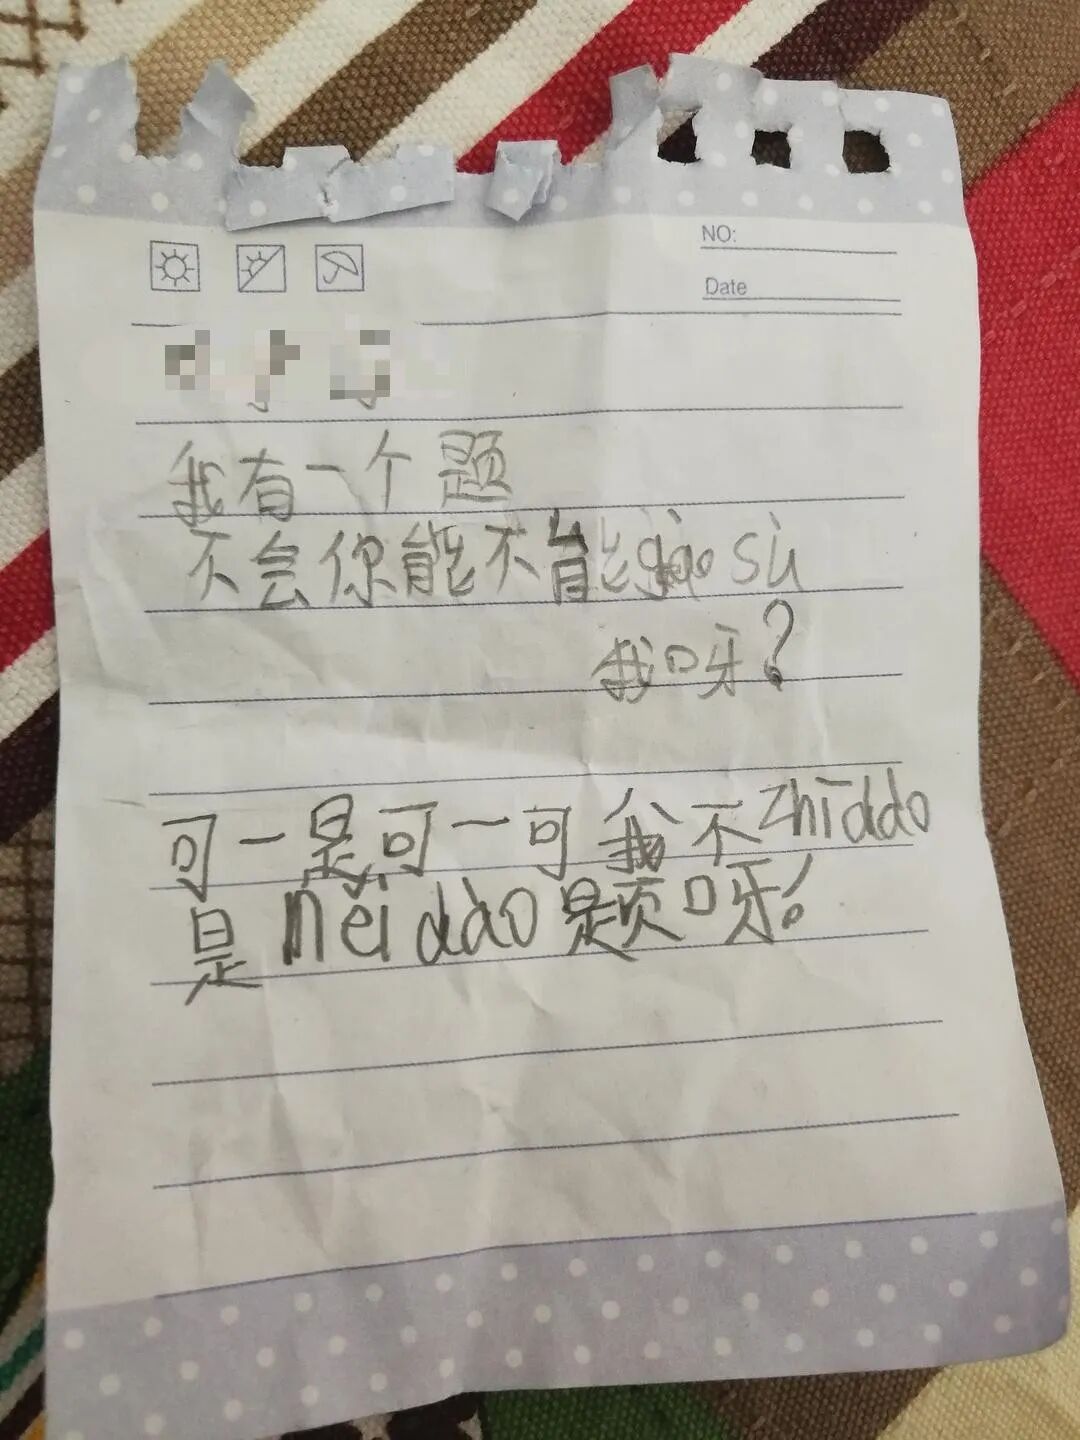 NO:
Date
我有一个题
不会你能不能gào sù
我呀？
可一是可一可我不zhīdào
是něidào题呀！